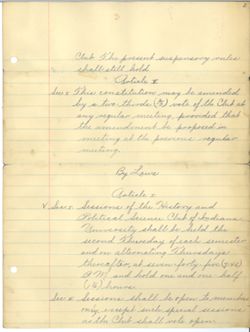 Club. The present suspensory rules
shall still hold.
Article V
Sec I This constitution may be amended
by a two-thirds (2/3) vote of the Club at
any regular meeting, provided that
the amendment be proposed in
meeting at the previous regular
meeting.
By Laws
Article I
Sec I. Sessions of the History and
Political Science Club of Indiana
University shall be held the
second Thursday of each semester
and on alternating Thursdays
thereafter, at seven-forty-five (7:45)
P.M. and hold one and one-half
(1 1/2) hours.
Sec II Sessions shall be open to members
only, except such special sessions
as the Club shall vote open.